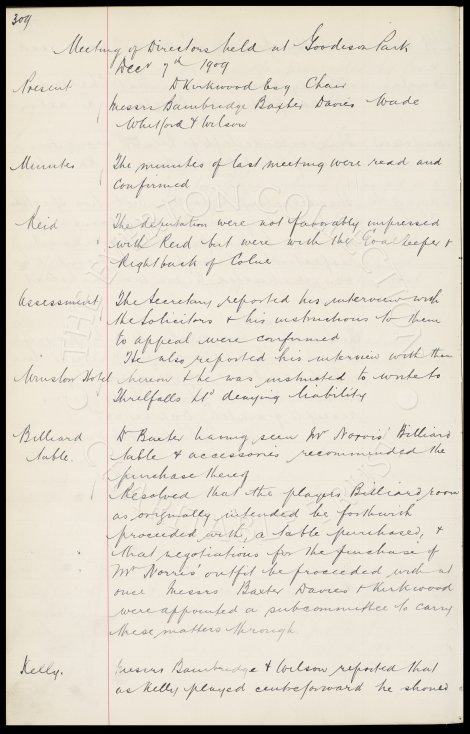 309
Meeting of Directors held at Goodison Park
Decr 7th 1909
D Kirkwood Esq Chair
Present
Messrs Bainbridge Baxter Davies Wade
Whitford & Wilson
Minutes The minutes of last meeting were read and
confirmed
Reid The deputation were not favorably impressed
with Reid but were with the Goal keeper &
Right back of Colne
Assessment The Secretary reported his interview with
the Solicitors & his instructions to them
to appeal were confirmed
He also reported his interview with them
Winslow Hotel hereon & he was instructed to write to
Threlfalls Ltd denying liability
Billiard Dr Baxter having seen Mr Norris' Billiard
table. table & accessories recommended the
purchase thereof
Resolved that the players Billiard room
as originally intended be forthwith
proceeded with, a table purchased, &
that negotiations for the purchase of
Mr Norris' outfit be proceeded with at
once Messrs Baxter Davies & Kirkwood
were appointed a subcommittee to carry
these matters through.
Kelly. Messrs Bainbridge & Wilson reported that
as Kelly played centreforward he should
THE EVERTON COLLECTION